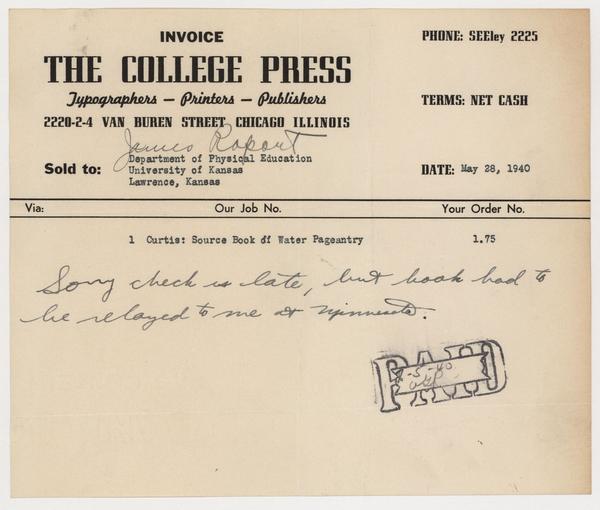 INVOICE
PHONE: SEEley 2225
THE COLLEGE PRESS
Typographers — Printers — Publishers
TERMS: NET CASH
2220-2-4 VAN BUREN STREET CHICAGO ILLINOIS
James
Sold to:
Department of Physical Education
University of Kansas
Lawrence, Kansas
DATE: May 28, 1940
Via:
Our Job No.
Your Order No.
1 Curtis: Source Book of Water Pageantry 1.75
Sorry check is late, but book had to
be relayed to me at Minnesota.
PAID
-5-40